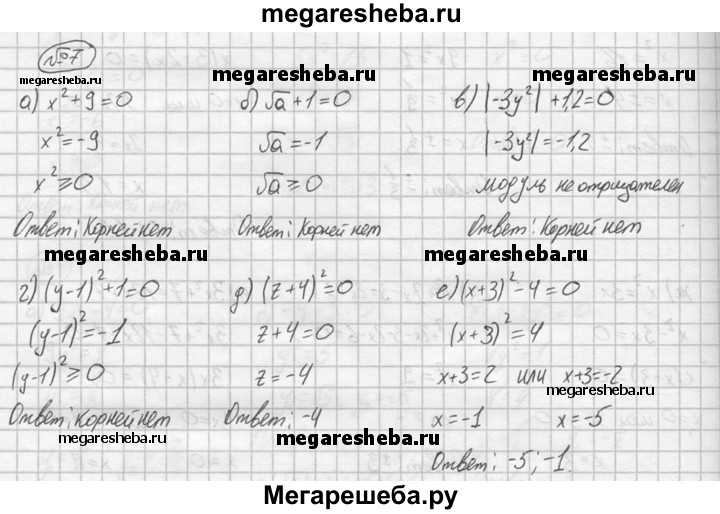 megaresheba.ru
№7
megaresheba.ru megaresheba.ru megaresheba.ru
а) x²+9=0 б) √a+1=0 в) |-3y²|+1,2=0
x²=-9 √a=-1 |-3y²|=-1,2
x²≥0 √a≥0 модуль не отрицателен
Ответ: Корней нет Ответ: Корней нет Ответ: Корней нет
megaresheba.ru megaresheba.ru
г) (y-1)²+1=0 д) (z+4)²=0 е) (x+3)²-4=0
(y-1)²=-1 z+4=0 (x+3)²=4
(y-1)²≥0 z=-4 x+3=2 или x+3=-2
megaresheba.ru
Ответ: Корней нет Ответ: -4 x=-1 x=-5
megaresheba.ru megaresheba.ru
Ответ: -5; -1.
Мегарешеба.ру